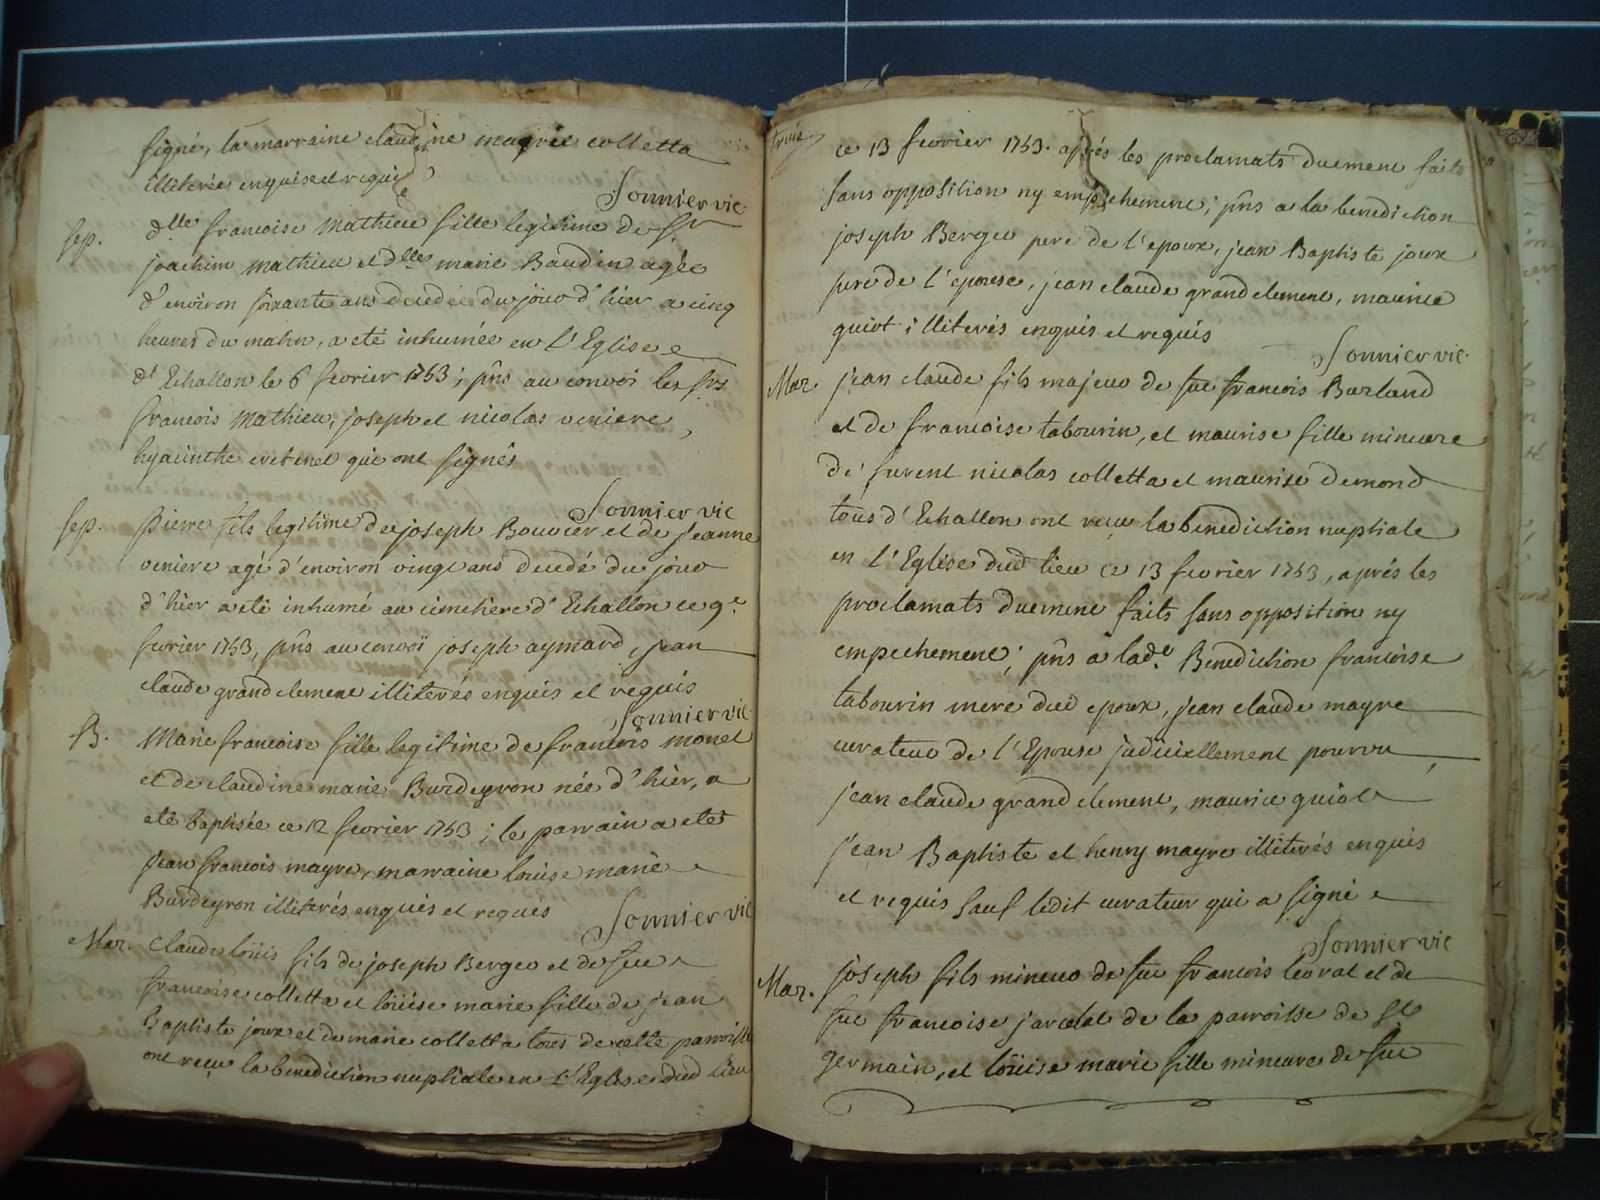 signé, la marraine claudine mayrie colletta
illiterés enquise et requise
Sonnier vic.
Sep. dlle francoise Mathieu fille legitime de Sr
joachim Mathieu et dlle marie Baudin agée
d'environ soixante ans decedée du jour d'hier a cinq
heures du matin, a eté inhumée en l'Eglise
d'Echallon le 6 fevrier 1753; pñs au convoi les srs
francois Mathieu, joseph et nicolas veniere,
hyacinthe evetenet qui ont signés
Sonnier vic
Sep. pierre fils legitime de joseph Bouvier et de jeanne
veniere agé d'environ vingt ans decedé du jour
d'hier a eté inhumé au cimetiere d'Echallon ce 9e
fevrier 1753, pñs au convoi joseph aymard, jean
claude grand clement illiterés enquis et requis
Sonnier vic
B. Marie francoise fille legitime de francois monet
et de claudine marie Burdeyron née d'hier, a
eté baptisée ce 12 fevrier 1753; le parrain a eté
jean francois mayre, marraine loüise marie
Burdeyron illiterés enquis et requis
Sonnier vic
Mar. Claude loüis fils de joseph Berger et de fue
francoise colletta et loüise marie fille de jean
Baptiste joux et de marie colletta tous de cette parroisse
ont reçu la benediction nuptiale en l'Eglise dud lieu
trois
ce 13 fevrier 1753. aprés les proclamats duement faits
sans opposition ny empechement; pñs a la benediction
joseph Berger pere de l'epoux, jean Baptiste joux
pere de l'epouse, jean claude grand clement, maurice
guiot illiterés enquis et requis
Sonnier vic.
Mar. jean claude fils majeur de fue francois Burland
et de francoise tabourin, et maurise fille mineure
de furent nicolas colletta et maurise demond
tous d'Echallon ont reçu la benediction nuptiale
en l'Eglise dud lieu ce 13 fevrier 1753, aprés les
proclamats duement faits sans opposition ny
empechement; pñs a lade Benediction francoise
tabourin mere dud epoux, jean claude mayre
curateur de l'Epouse judiciellement pourvu,
jean claude grand clement, maurice guiot
jean Baptiste et henry mayre illiterés enquis
et requis sauf ledit curateur qui a signé
Sonnier vic
Mar. joseph fils mineur de fue francois levrat et de
fue francoise jarcelat de la parroisse de St
germain, et loüise marie fille mineure de fue